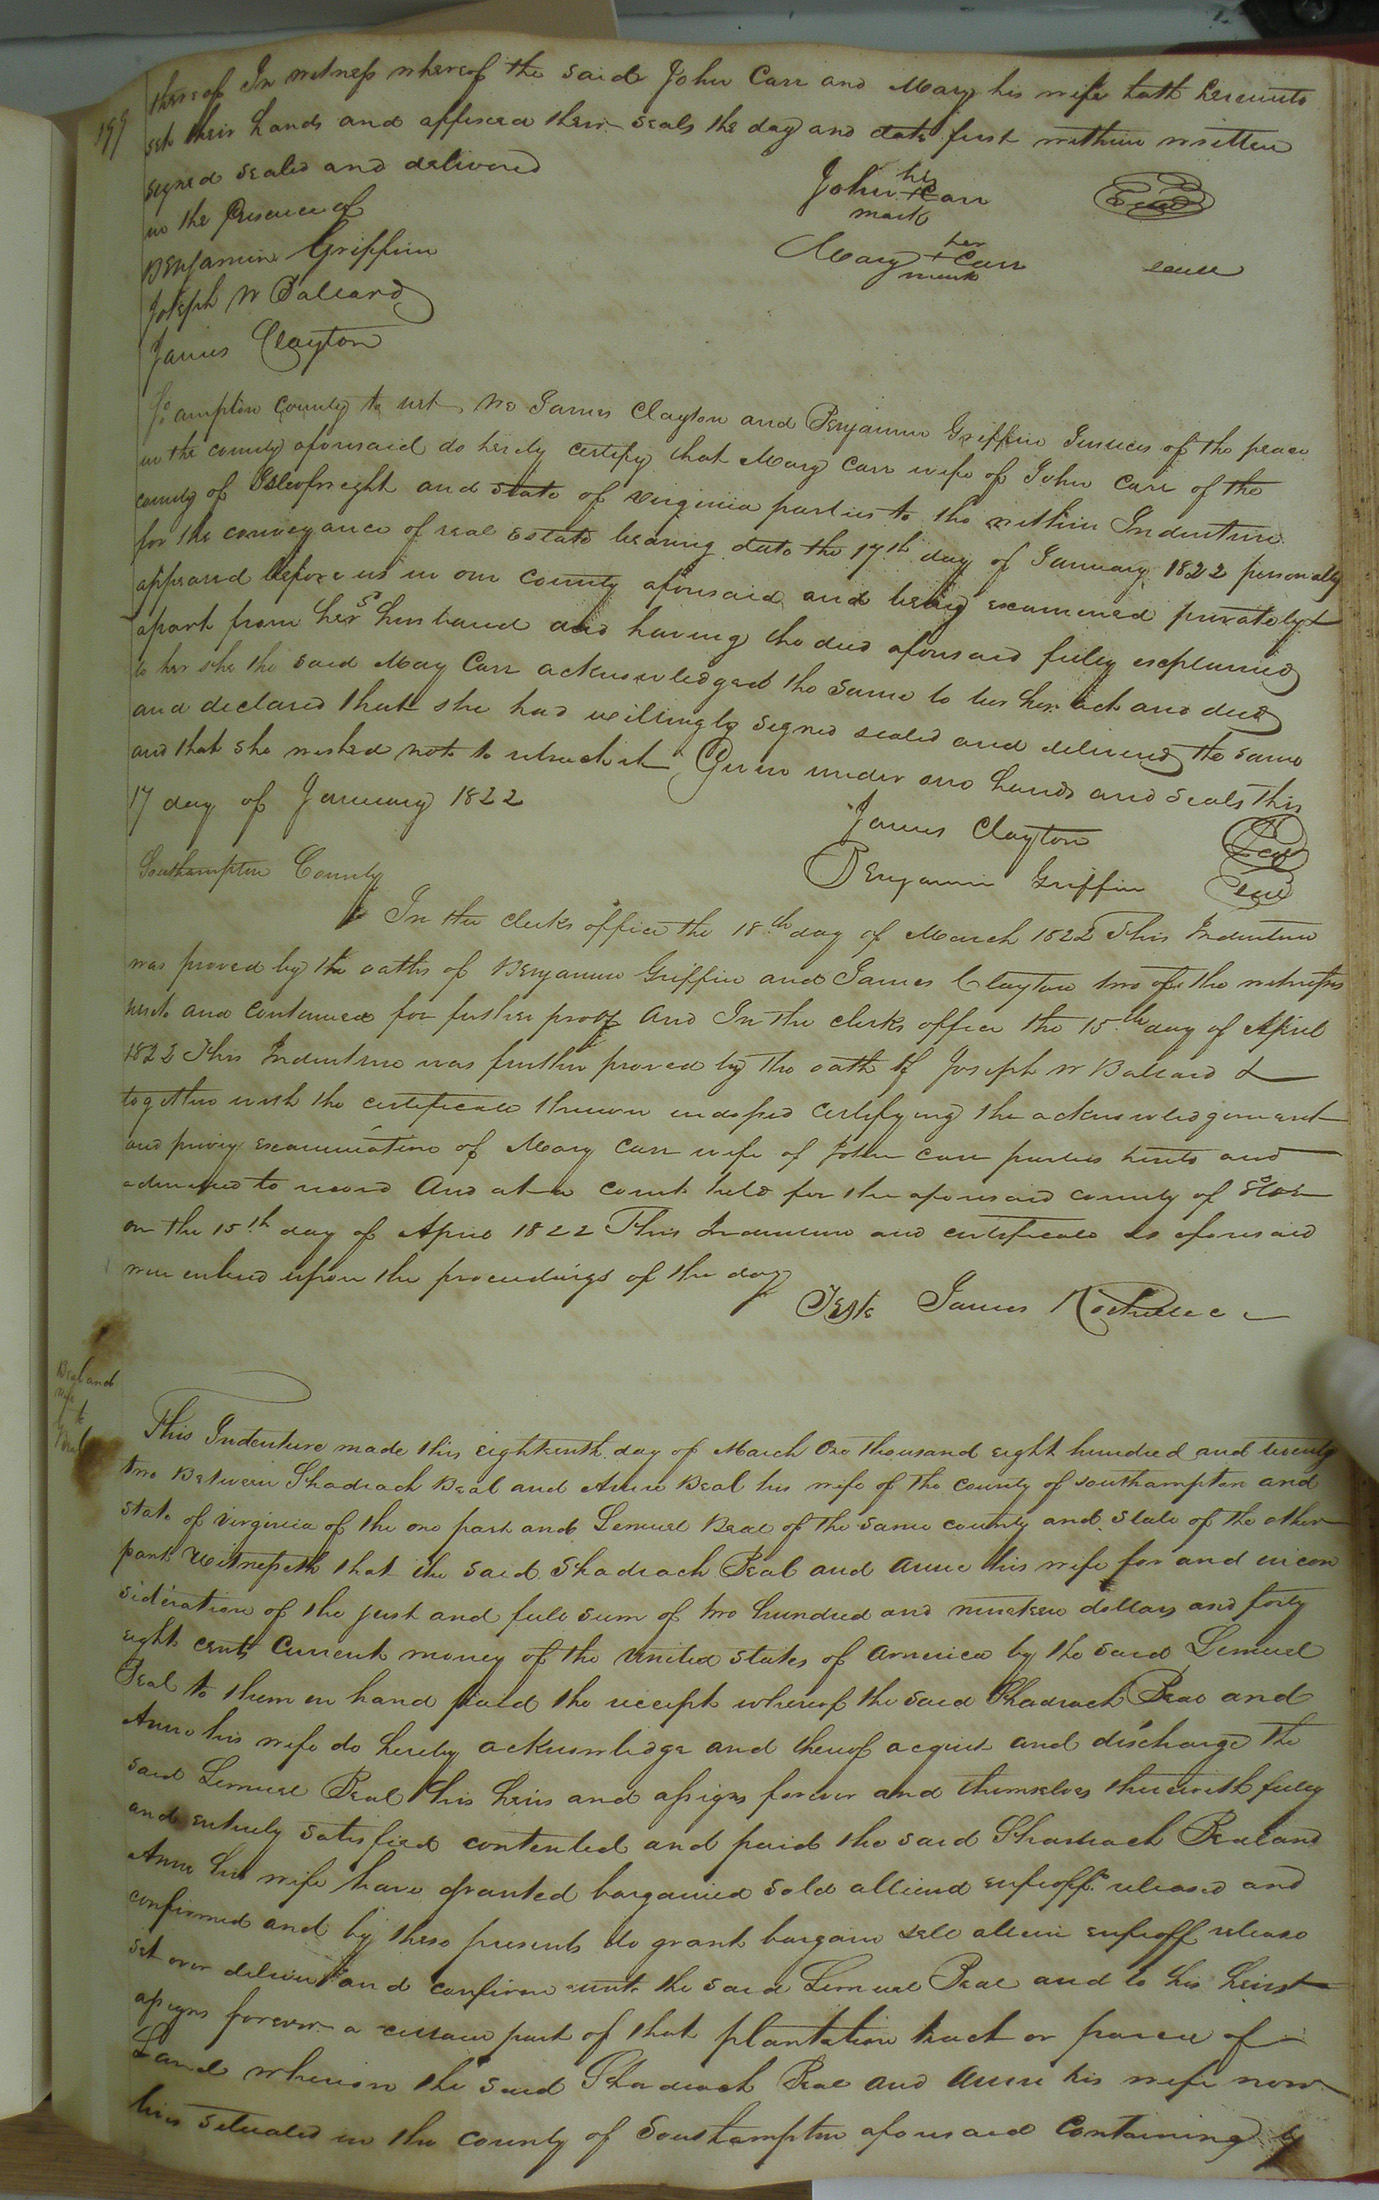 199
thereof In witness whereof the said John Carr and Mary his wife hath hereunto
set their hands and affixed their seals the day and date first within written
signed sealed and delivered
in the Presence of
Benjamin Griffin
Joseph W Ballard
James Clayton
his
John + Carr Seal
mark
her
Mary + Carr seal
mark
So ampton County to wit We James Clayton and Benjamin Griffin Justices of the peace
in the county aforesaid do hereby certify that Mary Carr wife of John Carr of the
county of Isleofwight and State of Virginia parties to the within Indenture
for the conveyance of real Estate bearing date the 17th day of January 1822 personally
appeared before us in our County aforesaid and being examined privately &
apart from her sd husband and having the deed aforesaid fully explained
to her she the said Mary Carr acknowledged the same to be her act and deed
and declared that she had willingly signed sealed and delivered the same
and that she wished not to retract it Given under our hands and seals this
17 day of January 1822
James Clayton Seal
Benjamin Griffin Seal
Southampton County
In the clerks office the 18th day of March 1822 This Indenture
was proved by the oaths of Benjamin Griffin and James Clayton two of the witnesses
hereto and continued for further proof And In the clerks office the 15th day of April
1822 This Indenture was further proved by the oath of Joseph W Ballard &
together with the certificate thereon endorsed certifying the acknowledgement
and privy examination of Mary Carr wife of John Carr parties hereto and
admitted to record And at a Court held for the aforesaid county of
on the 15th day of April 1822 This Indenture and certificate as aforesaid
were entered upon the proceedings of the day
Teste James Rochelle c
Beal and
wife
to
Beal
This Indenture made this eighteenth day of March One thousand eight hundred and twenty
two Between Shadrach Beal and Anne Beal his wife of the county of Southampton and
State of Virginia of the one part and Lemuel Beal of the same county and State of the other
part Witnesseth that the said Shadrach Beal and Anne his wife for and in con
sideration of the just and full sum of two hundred and nineteen dollars and forty
eight cents Current money of the United States of America by the said Lemuel
Beal to them in hand paid the receipt whereof the said Shadrach Beal and
Anne his wife do hereby acknowledge and thereof acquit and discharge the
said Lemuel Beal his heirs and assigns forever and themselves therewith fully
and entirely satisfied contented and paid the said Shadrach Beal and
Anne his wife have granted bargained sold aliend enfeoffd released and
confirmed and by these presents do grant bargain sell alien enfeoff release
set over deliver and confirm unto the said Lemuel Beal and to his heirs &
assigns forever a certain part of that plantation tract or parcel of
Land whereon the said Shadrach Beal and Anne his wife now
lives situated in the County of Southampton aforesaid Containing by